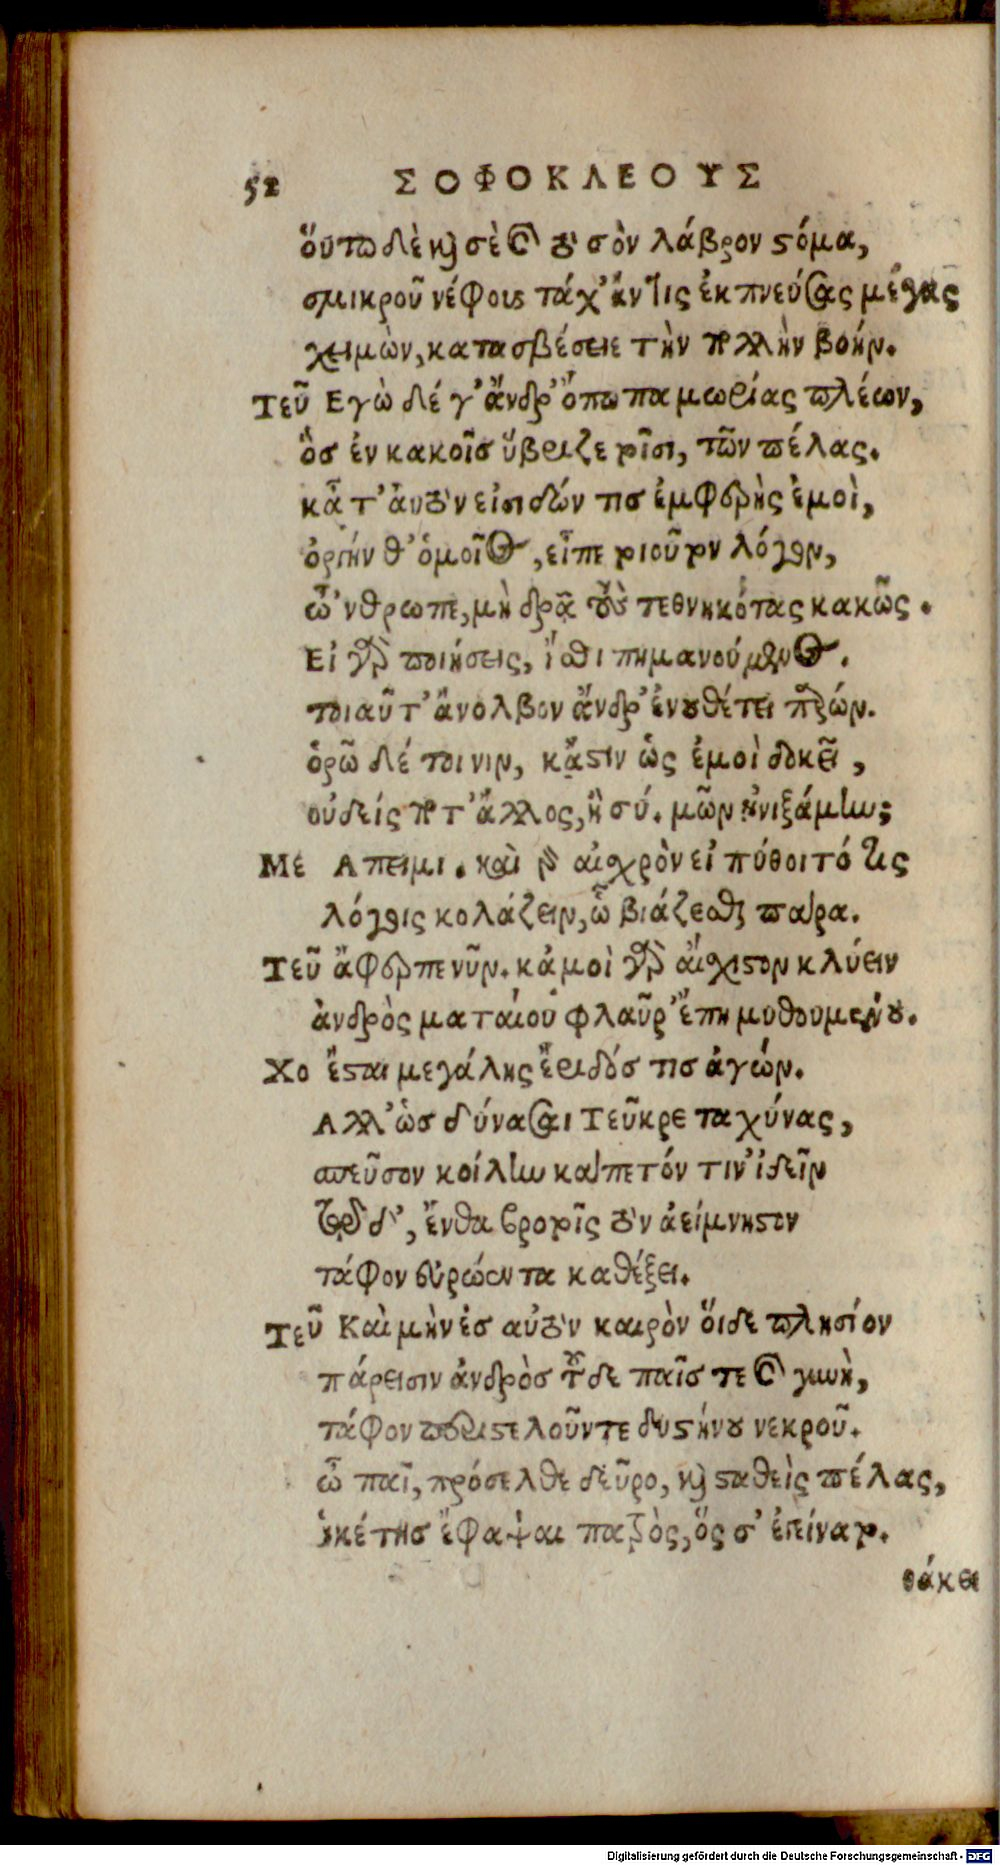 52 ΣΟΦΟΚΛΕΟΥΣ
ὅυτω δὲ καὶ σὲ καὶ τὸ σὸν λάβρον στόμα,
σμικροῦ νέφους τάχ' ἄν τις ἐκπνεύσας μέγας
χειμὼν, κατασβέσειε τὴν πολλὴν βοήν.
Τεῦ Εγὼ δέ γ' ἄνδρ' ὄπωπα μωρίας πλέων,
ὃς ἐν κακοῖς ὕβριζε τοῖσι, τῶν πέλας.
κᾆτ' ἀυτὸν εἰσιδών τις ἐμφερὴς ἐμοὶ,
ὀργήν θ' ὁμοῖος, εἶπε τοιοῦτον λόγον,
ὦ 'νθρωπε, μὴ δρᾷ τοὺς τεθνηκότας κακῶς.
Εἰ γὰρ ποιήσεις, ἴσθι πημανούμενος.
τοιαῦτ' ἄνολβον ἄνδρ' ἐνουθέτει παρών.
ὁρῶ δέ τοι νιν, κἄστιν ὡς ἐμοὶ δοκεῖ,
οὐδείς ποτ' ἄλλος, ἢ σύ. μῶν ᾐνιξάμην;
Με Απειμι. καὶ γὰρ αἰσχρὸν εἰ πύθοιτό τις
λόγοις κολάζειν, ὧ βιάζεσθαι παρα.
Τεῦ ἄφερπε νῦν. κἀμοὶ γὰρ αἴσχιστον κλύειν
ἀνδρὸς ματαίου φλαῦρ' ἔπη μυθουμένου.
Χο ἔσται μεγάλης ἔριδός τις ἀγών.
Αλλ' ὡς δύνασαι Τεῦκρε ταχύνας,
σπεῦσον κοίλην κάπετόν τιν' ἰδεῖν
τῷδ', ἔνθα βροτοῖς τὸν ἀείμνηστον
τάφον εὐρώεντα καθέξει.
Τεῦ Καὶ μὴν ἐς αὐτὸν καιρὸν ὅιδε πλησίον
πάρεισιν ἀνδρὸς τοῦδε παῖς τε καὶ γυνὴ,
τάφον περιστελοῦντε δυστήνου νεκροῦ.
ὦ παῖ, πρόσελθε δεῦρο, καὶ σταθεὶς πέλας,
ἱκέτης ἔφαψαι πατρὸς, ὅς σ' ἐγείνατο.
θάκει
Digitalisierung gefördert durch die Deutsche Forschungsgemeinschaft - DFG